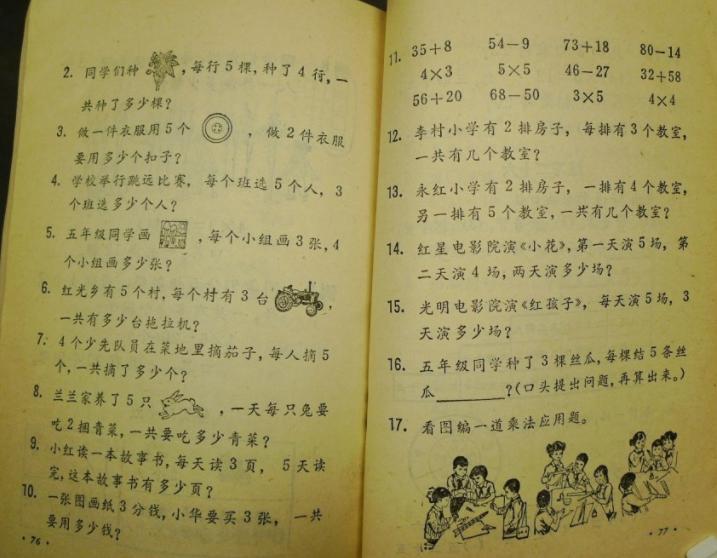 2. 同学们种 ，每行5棵，种了4行，一
共种了多少棵？
3. 做一件衣服用5个 ，做2件衣服
要用多少个扣子？
4. 学校举行跳远比赛，每个班选5个人，3
个班选多少个人？
5. 五年级同学画 ，每个小组画3张，4
个小组画多少张？
6. 红光乡有5个村，每个村有3台 ，
一共有多少台拖拉机？
7. 4个少先队员在菜地里摘茄子，每人摘5
个，一共摘了多少个？
8. 兰兰家养了5只 ，一天每只兔要
吃2捆青菜，一共要吃多少青菜？
9. 小红读一本故事书，每天读3页，5天读
完，这本故事书有多少页？
10. 一张图画纸3分钱，小华要买3张，一共
要用多少钱？
·76·
11. 35+8 54－9 73+18 80－14
4×3 5×5 46－27 32+58
56+20 68－50 3×5 4×4
12. 李村小学有2排房子，每排有3个教室，
一共有几个教室？
13. 永红小学有2排房子，一排有4个教室，
另一排有5个教室，一共有几个教室？
14. 红星电影院演《小花》，第一天演5场，第
二天演4场，两天演多少场？
15. 光明电影院演《红孩子》，每天演5场，3
天演多少场？
16. 五年级同学种了3棵丝瓜，每棵结5条丝
瓜________？（口头提出问题，再算出来。）
17. 看图编一道乘法应用题。
·77·